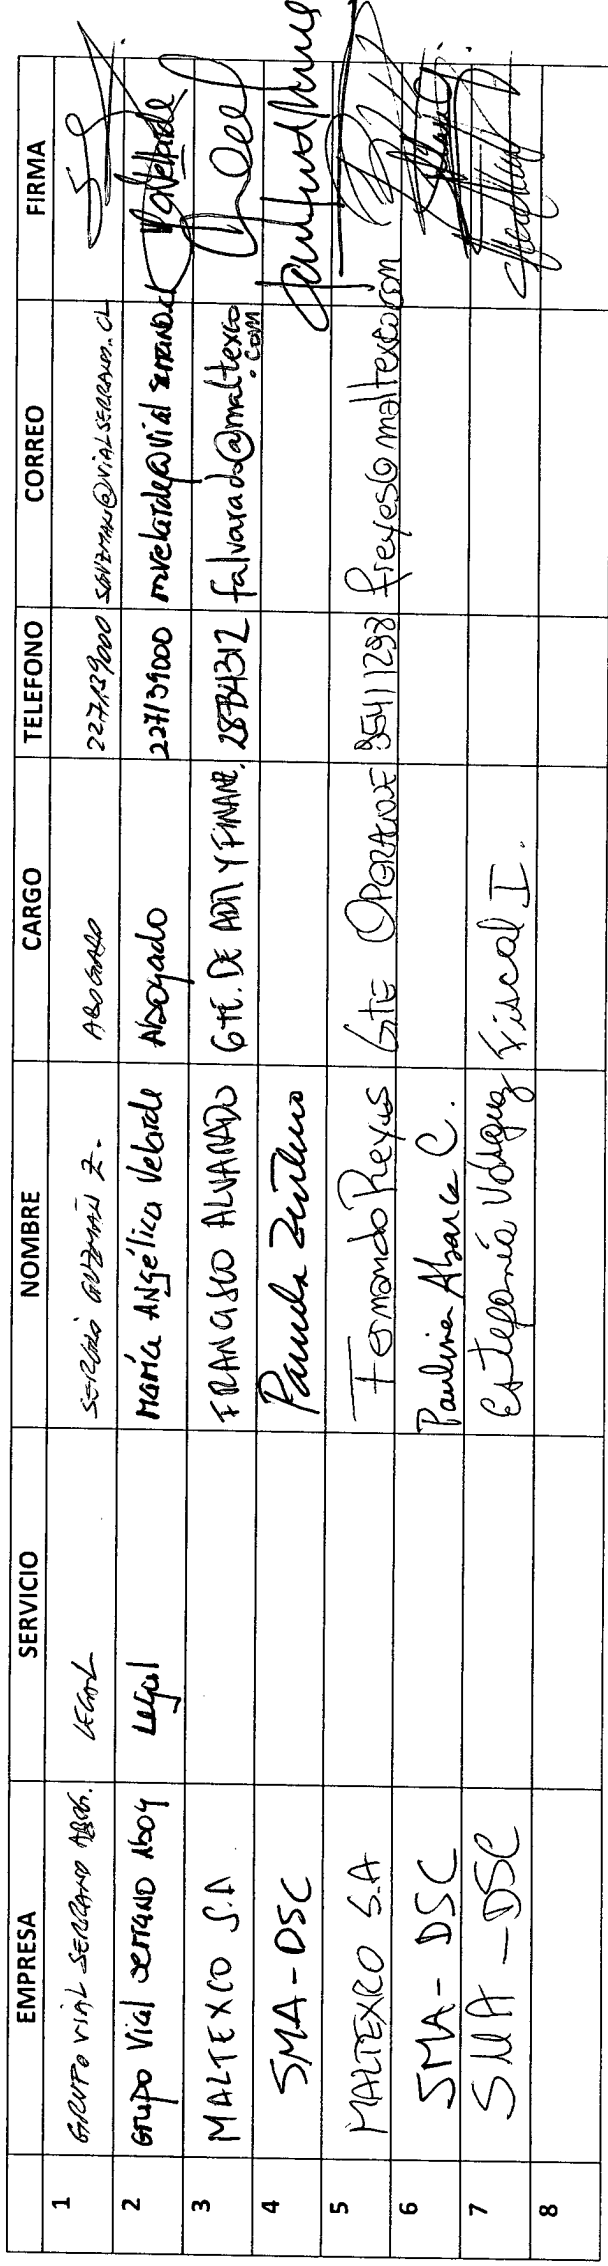 EMPRESA SERVICIO NOMBRE CARGO TELEFONO CORREO FIRMA
1 GRUPO VIAL SERRANO ABOG. LEGAL SERGIO GUZMÁN Z. ABOGADO 227139000 SGUZMAN@VIALSERRANO.CL
2 Grupo Vial Serrano Abog Legal María Angélica Velarde Abogado 227139000 mvelarde@vialserrano.cl MaVelarde
3 MALTEXCO S.A FRANCISCO ALVARADO GTE. DE ADM Y FINANZ. falvarado@maltexco.com
4 SMA-DSC
5 MALTEXCO S.A Fernando Reyes Gte OPERACIONE 95411298 freyes@maltexco.com
6 SMA-DSC Paulina Abarca C.
7 SMA-DSC Estefanía Vásquez Fiscal I.
8